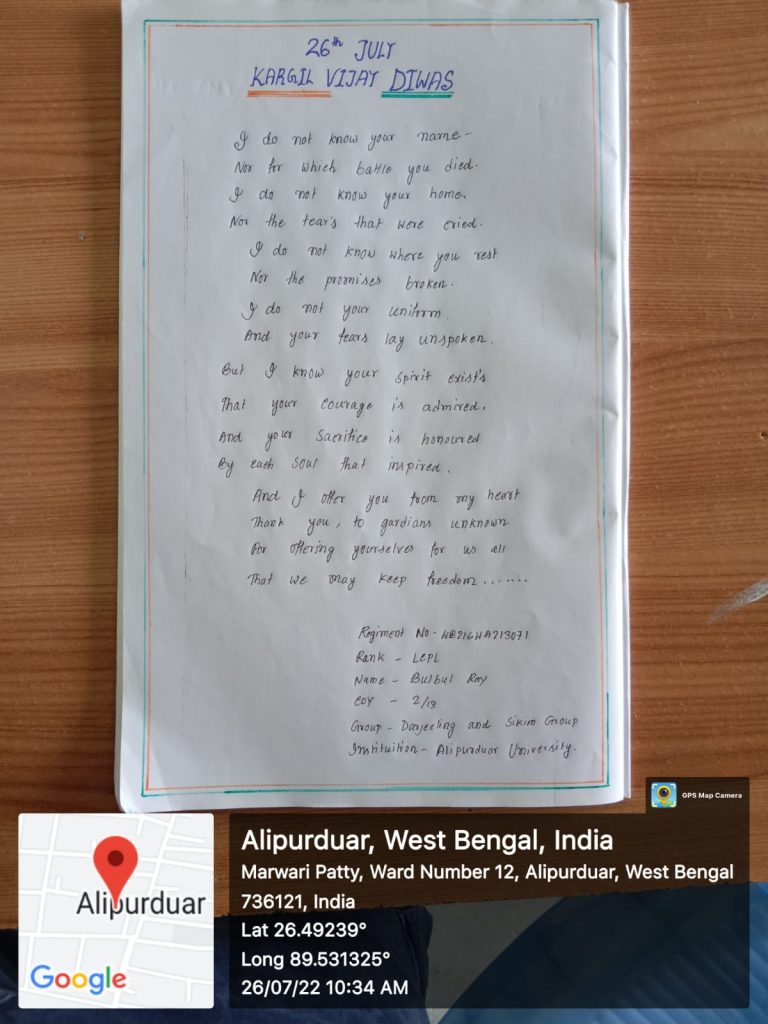 26th JULY
KARGIL VIJAY DIWAS
I do not know your name-
Nor for which battle you died.
I do not know your home.
Nor the tear's that were cried.
I do not know where you rest
Nor the promises broken.
I do not your uniform.
And your fears lay unspoken.
But I know your spirit exist's
That your courage is admired.
And your sacrifice is honoured
By each soul that inspired.
And I offer you from my heart
Thank you, to gardians unknown
For offering yourselves for us all
That we may keep freedom.......
Regiment No- WB21GWA213071
Rank - LCPL
Name - Bulbul Roy
COY - 2/13
Group - Darjeeling and Sikim Group
Instituition - Alipurduar University.
GPS Map Camera
Alipurduar
Google
Alipurduar, West Bengal, India
Marwari Patty, Ward Number 12, Alipurduar, West Bengal
736121, India
Lat 26.49239°
Long 89.531325°
26/07/22 10:34 AM